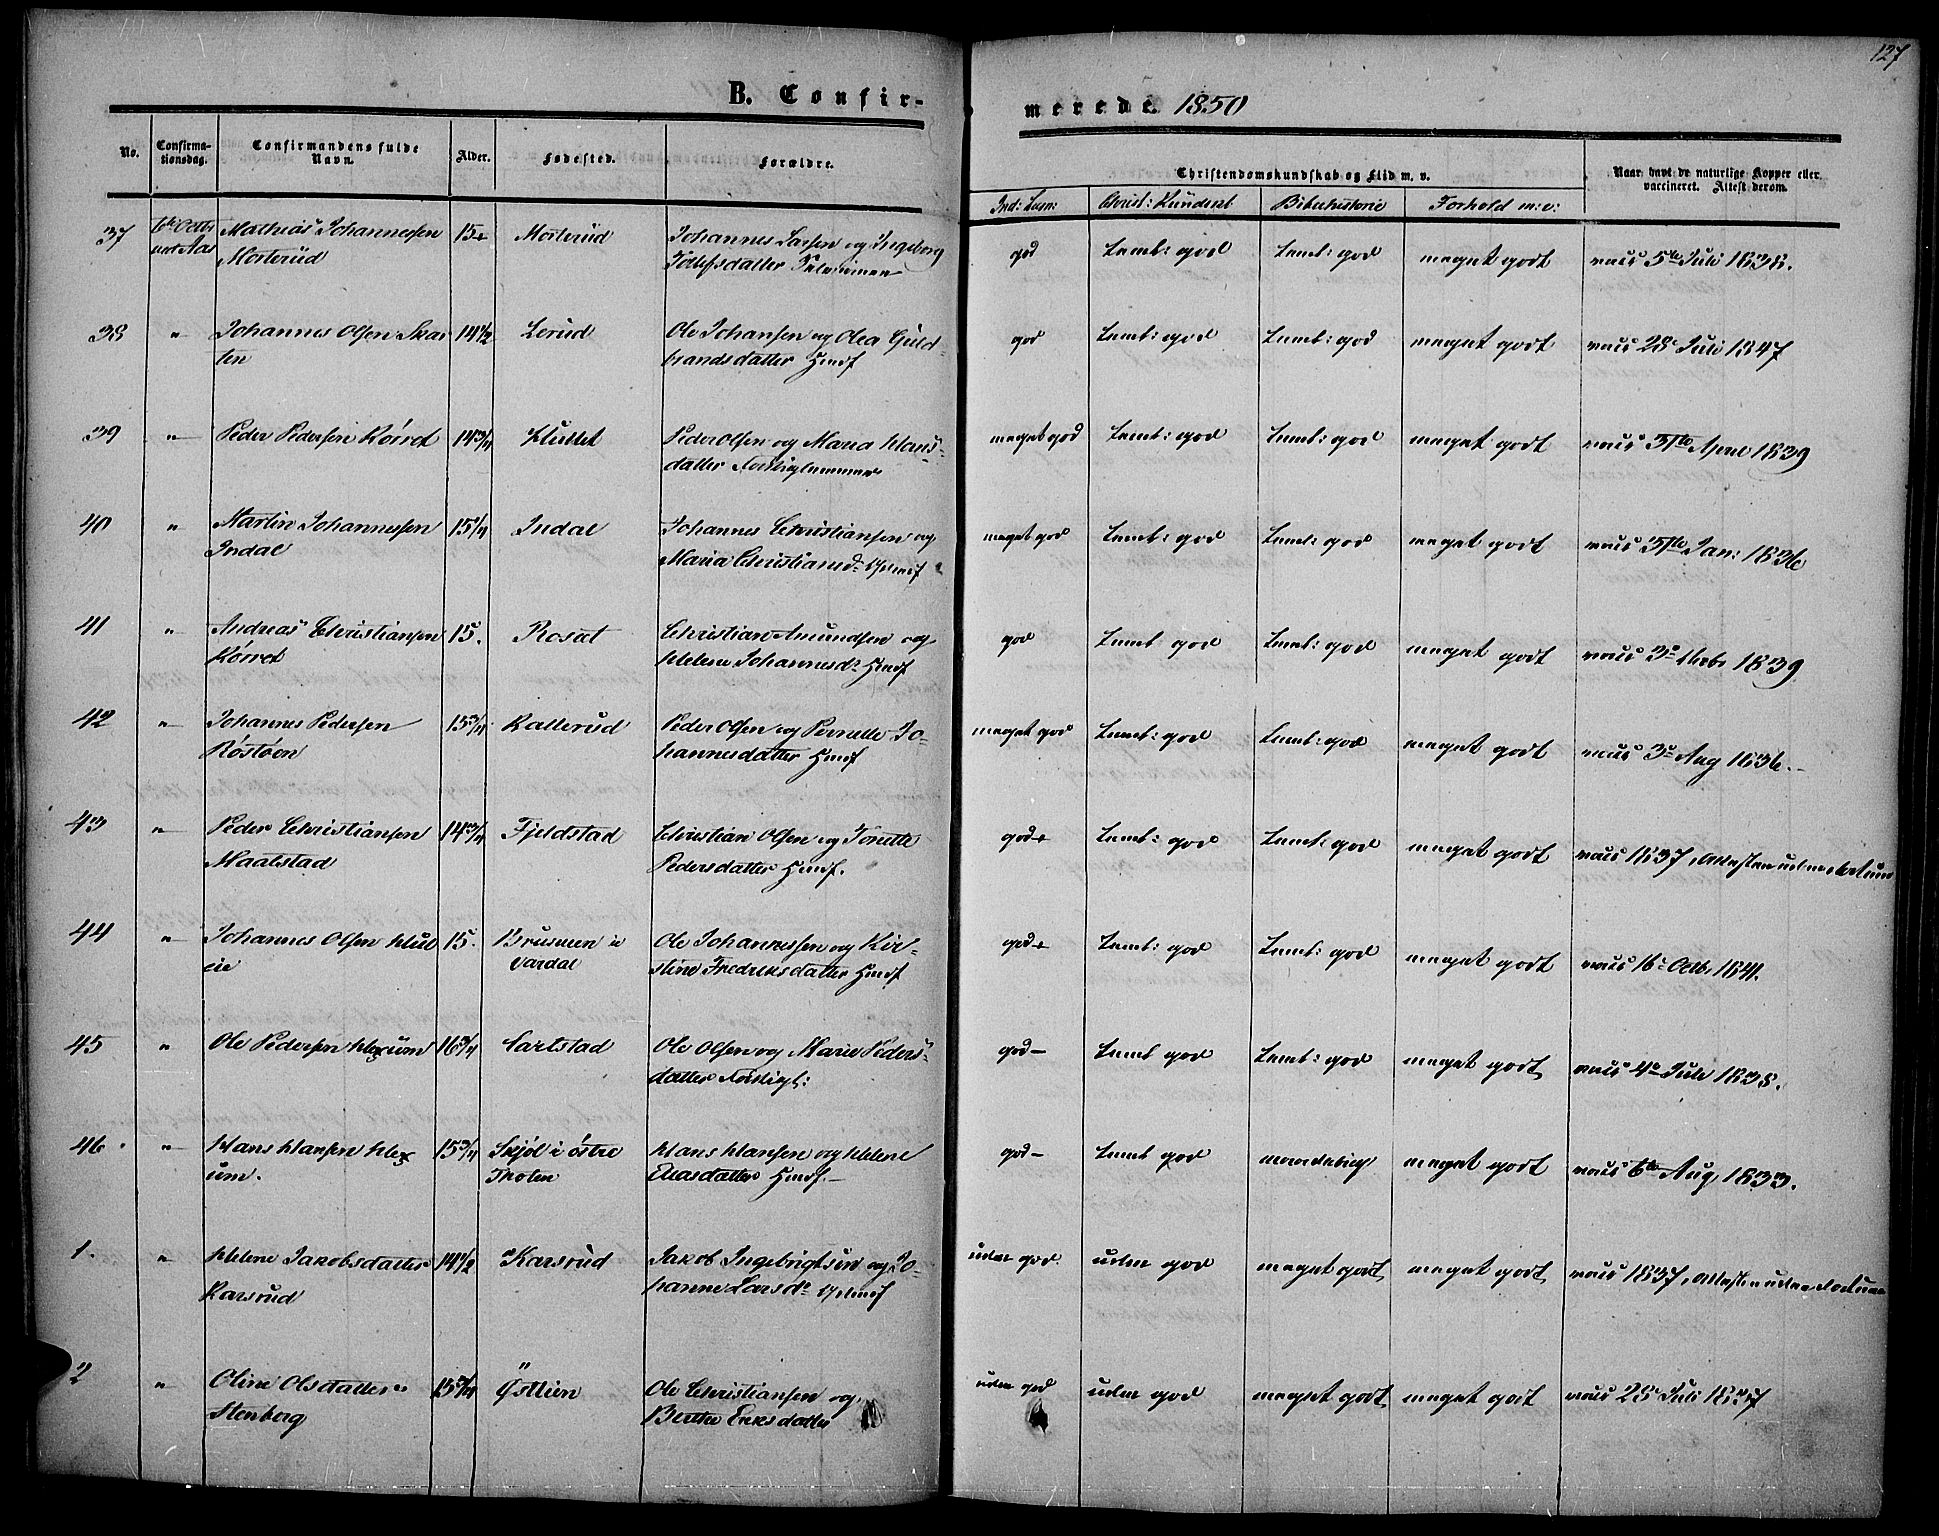 127
B. Confir-
merede. 1850
No.
Confirma-
tionsdag.
Confirmandens fulde
Navn.
Alder.
Fødested.
Forældre.
Christendomskundskab og Flid m. v.
Naar havt de naturlige Kopper eller
vaccineret. Attest derom.
Christ: Kundsk
Forhold m: v:
37
Mathias Johannessen
Mosterud
15
Mosterud
Johannes Larsen og Ingeborg
god
Temb: god
Temb: god
meget godt
vacc 5te Juli 1838.
38
"
Johannes Olsen Skar
sen
14 1/2
Lerud
Ole Johansen og Olea Guld-
brandsdatter Huusf
god
Temb: god
Temb: god
meget godt
vacc 28 Juli 1847
39
"
Peder Pedersen Kørret
14 3/4
Hullet
Peder Olsen og Maria Hans-
datter
meget god
Temb: god
Temb: god
meget godt
April 1839
40
"
Martin Johannessen
Indal
15 1/4
Indal
Johannes Christiansen og
Maria Christiansd:
meget god
Temb: god
Temb: god
meget godt
Jan: 1836
41
"
Andreas Christiansen
Kørret
15.
Rosut
Christian Amundsen og
Helene Johannesd: Huusf
god
Temb god
Temb: god
meget godt
1839
42
"
Johannes Pedersen
Røstøen
15 3/4
Kallerud
Peder Olsen og Pernelle Jo-
hannesdatter Huusf
meget god
Temb: god
Temb: god
meget godt
vacc 3 Aug 1836.
43
"
Peder Christiansen
Maalstad
14 3/4
Fjeldstad
Christian Olsen og Jonette
Pedersdatter Huusf.
god
Temb: god
Temb: god
meget godt
vacc 1837, Attesten uden datum
44
"
Johannes Olsen Hul
eie
15.
Brusveen i
Vardal
Ole Johannessen og Kir-
stine Fredriksdatter Huusf
god
Temb: god
Temb: god
meget godt
vacc 16 Octb 1841.
45
"
Ole Pedersen Hexum
16 3/4
Carlstad
Ole Olsen og Marie Peders-
datter
god
Temb god
Temb: god
meget godt
vacc 4 Juli 1838.
46
"
Hans Hansen Hex
um.
15 3/4
Skjøl i østre
Thoten
Hans Hansen og Helene
Eliasdatter Huusf.
god
Temb god
maadelig
meget godt
vacc 6te Aug 1833.
1.
"
Helene Jakobsdatter
Karsrud
14 1/2
Karsrud
Jakob Ingebrigtsen og Jo-
hanne Larsd:
udm god
udm god
meget godt
meget godt
vacc 1837, Attesten uden datum
2
"
Oline Olsdatter
Stenberg
15 3/4
Østlien
Ole Christiansen og
Berthe Eriksdatter
udm god
udm god
meget godt
meget godt
vacc 28 Juli 1837